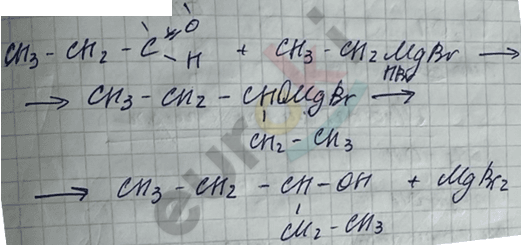 O
CH₃ - CH₂ - C - H + CH₃ - CH₂MgBr →
HBr
→ CH₃ - CH₂ - CHOMgBr →
CH₂ - CH₃
→ CH₃ - CH₂ - CH - OH + MgBr₂
CH₂ - CH₃